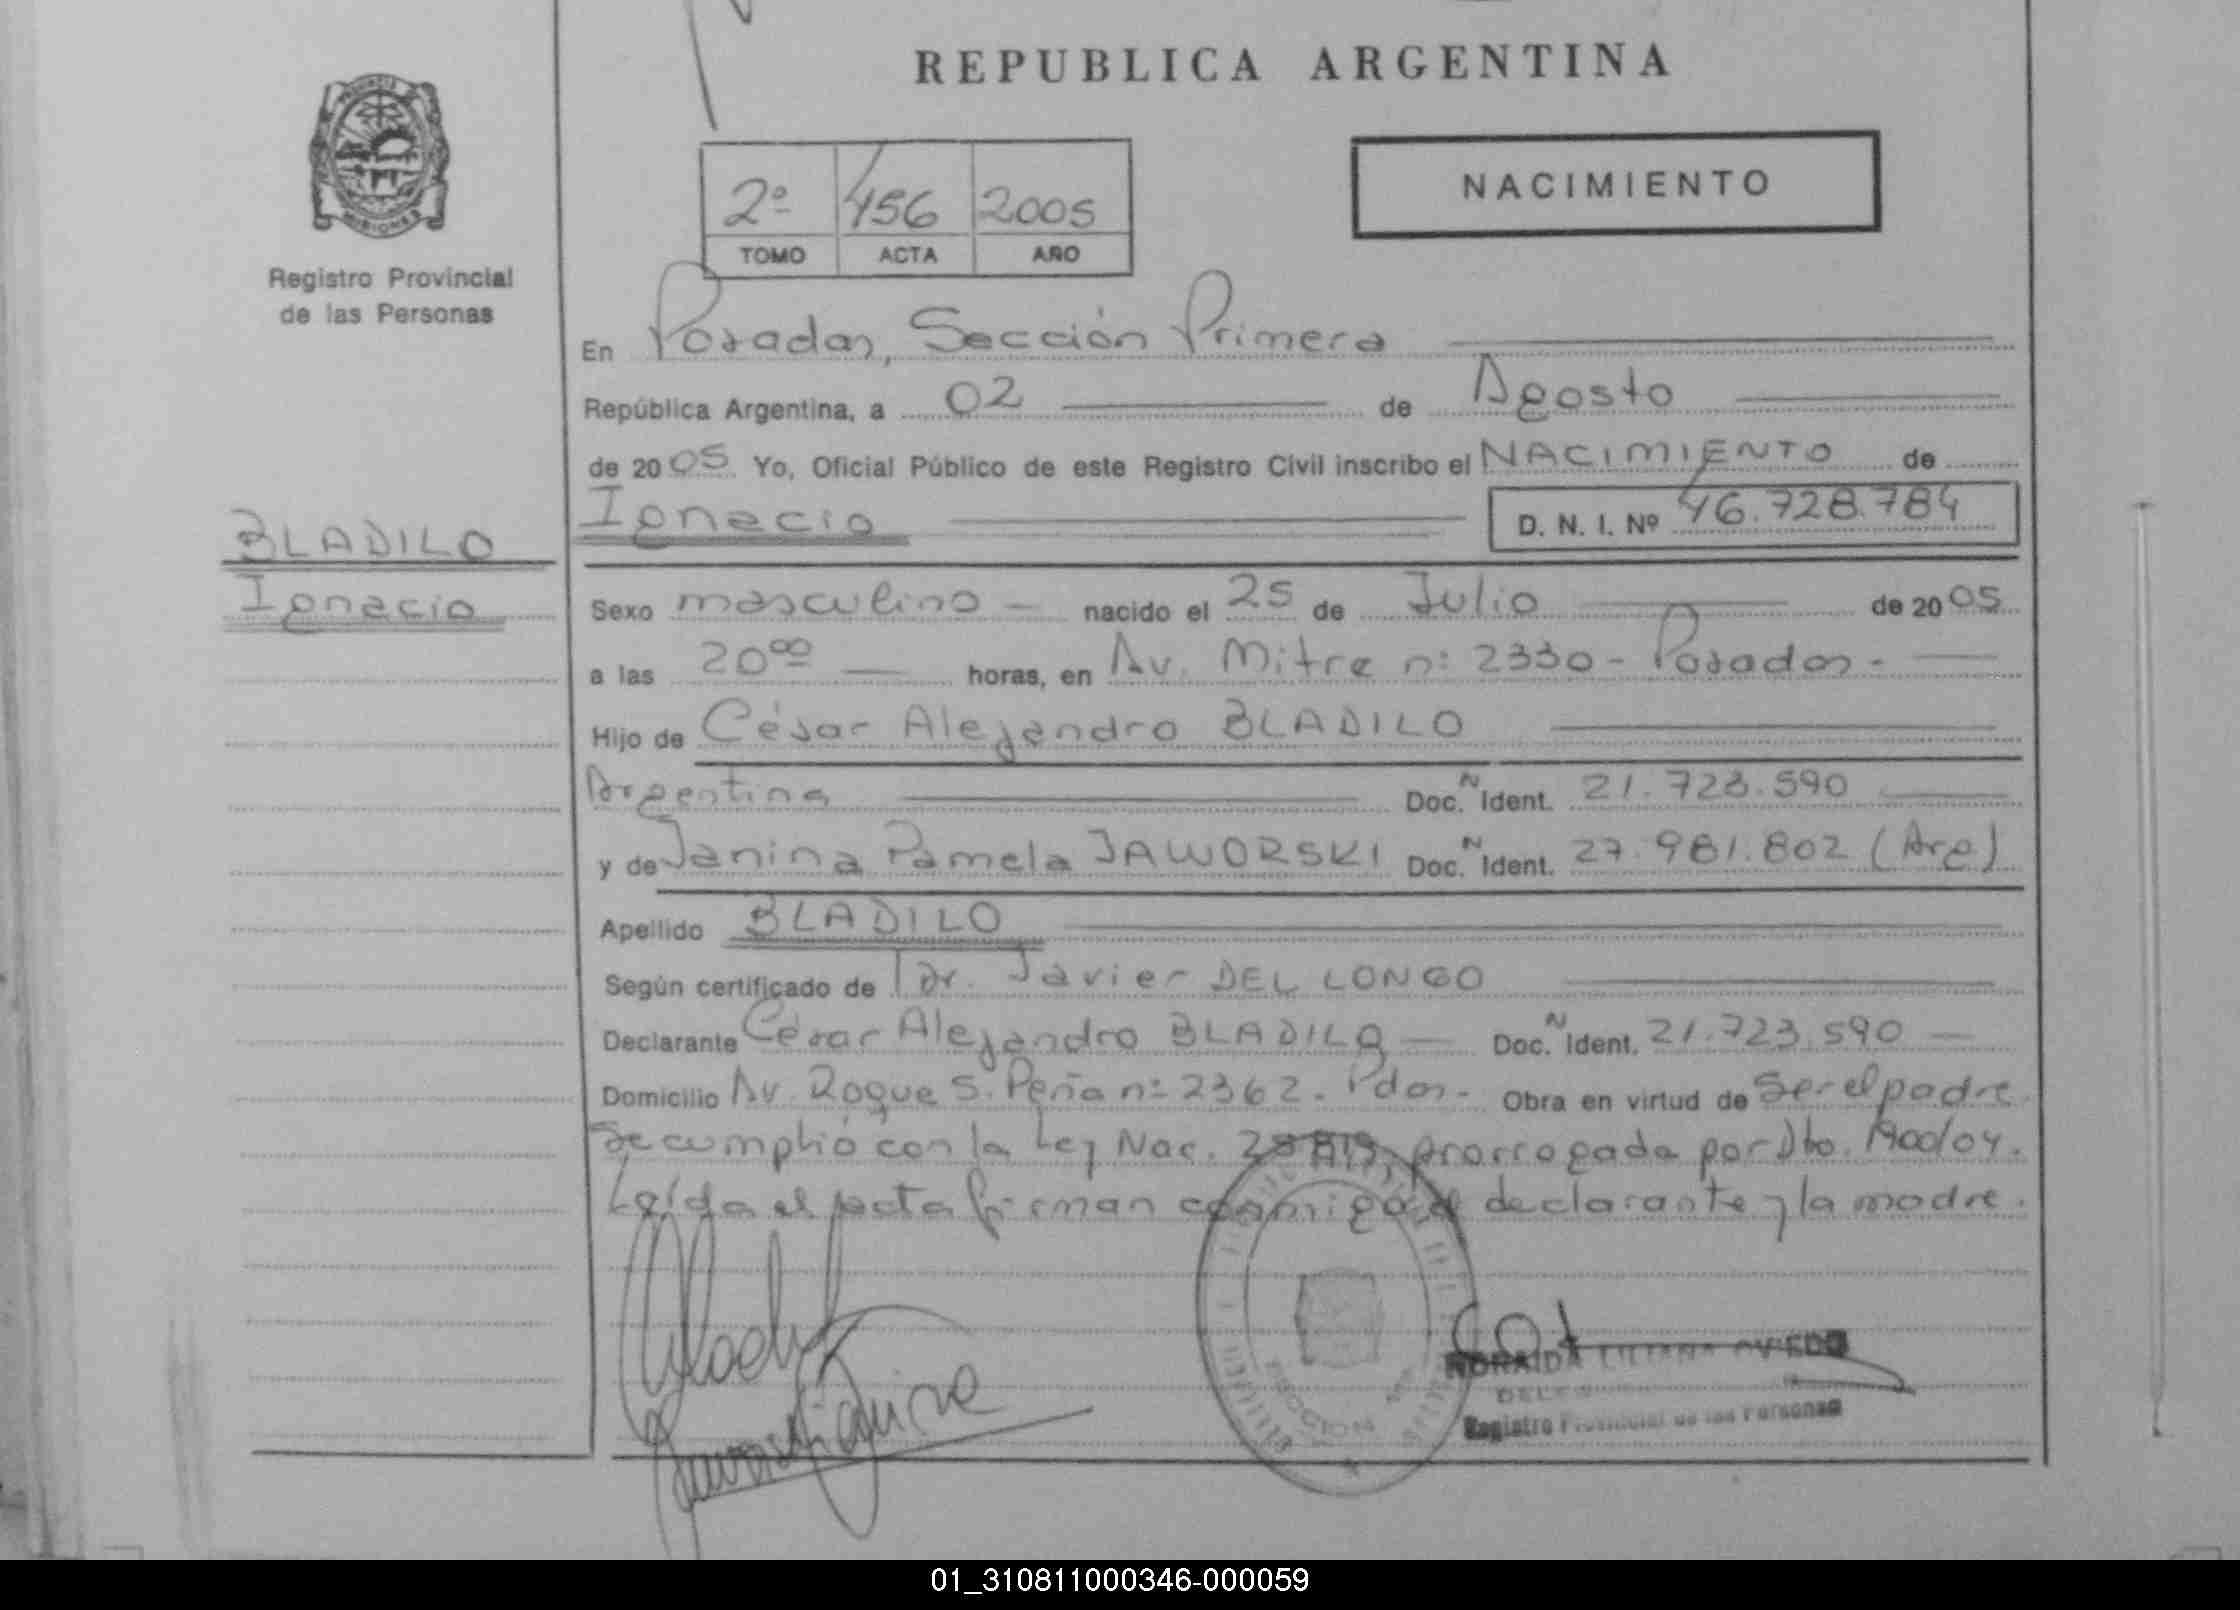 REPUBLICA ARGENTINA
PROVINCIA DE
MISIONES
Registro Provincial
de las Personas
2º 456 2005
TOMO ACTA AÑO
NACIMIENTO
En Posadas, Sección Primera
República Argentina, a 02 de Agosto
de 2005 Yo, Oficial Público de este Registro Civil inscribo el NACIMIENTO de
Ignacio D. N. I. Nº 46.728.784
BLADILO
Ignacio
Sexo masculino nacido el 25 de Julio de 2005
a las 20⁰⁰ horas, en Av. Mitre nº 2330 - Posadas -
Hijo de César Alejandro BLADILO
Argentina Doc. N Ident. 21.723.590
y de Janina Pamela JAWORSKI Doc. N Ident. 27.981.802 (Arg)
Apellido BLADILO
Según certificado de Dr. Javier DEL LONGO
Declarante César Alejandro BLADILO Doc. N Ident. 21.723.590
Domicilio Av. Roque S. Peña nº 2362 - Pdas - Obra en virtud de ser el padre
Se cumplió con la Ley Nac. prorrogada por Dto. 1900/04.
Leída el acta firman conmigo el declarante y la madre.
LILIANA OVIEDO
Registro Provincial de las Personas
01_310811000346-000059